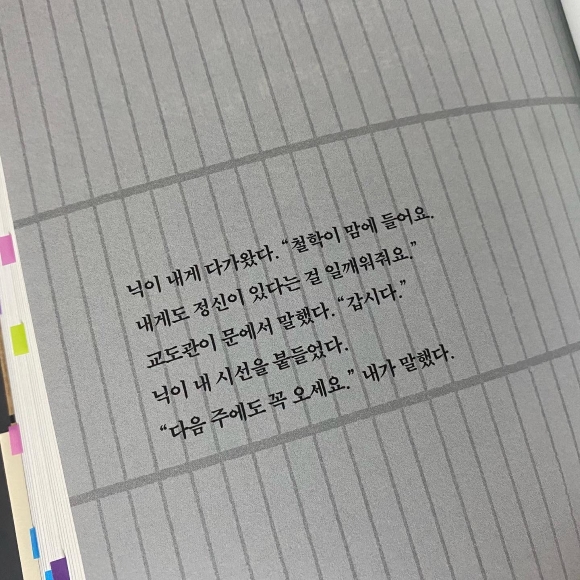 닉이 내게 다가왔다. “철학이 맘에 들어요.
내게도 정신이 있다는 걸 일깨워줘요.”
교도관이 문에서 말했다. “갑시다.”
닉이 내 시선을 붙들었다.
“다음 주에도 꼭 오세요.” 내가 말했다.